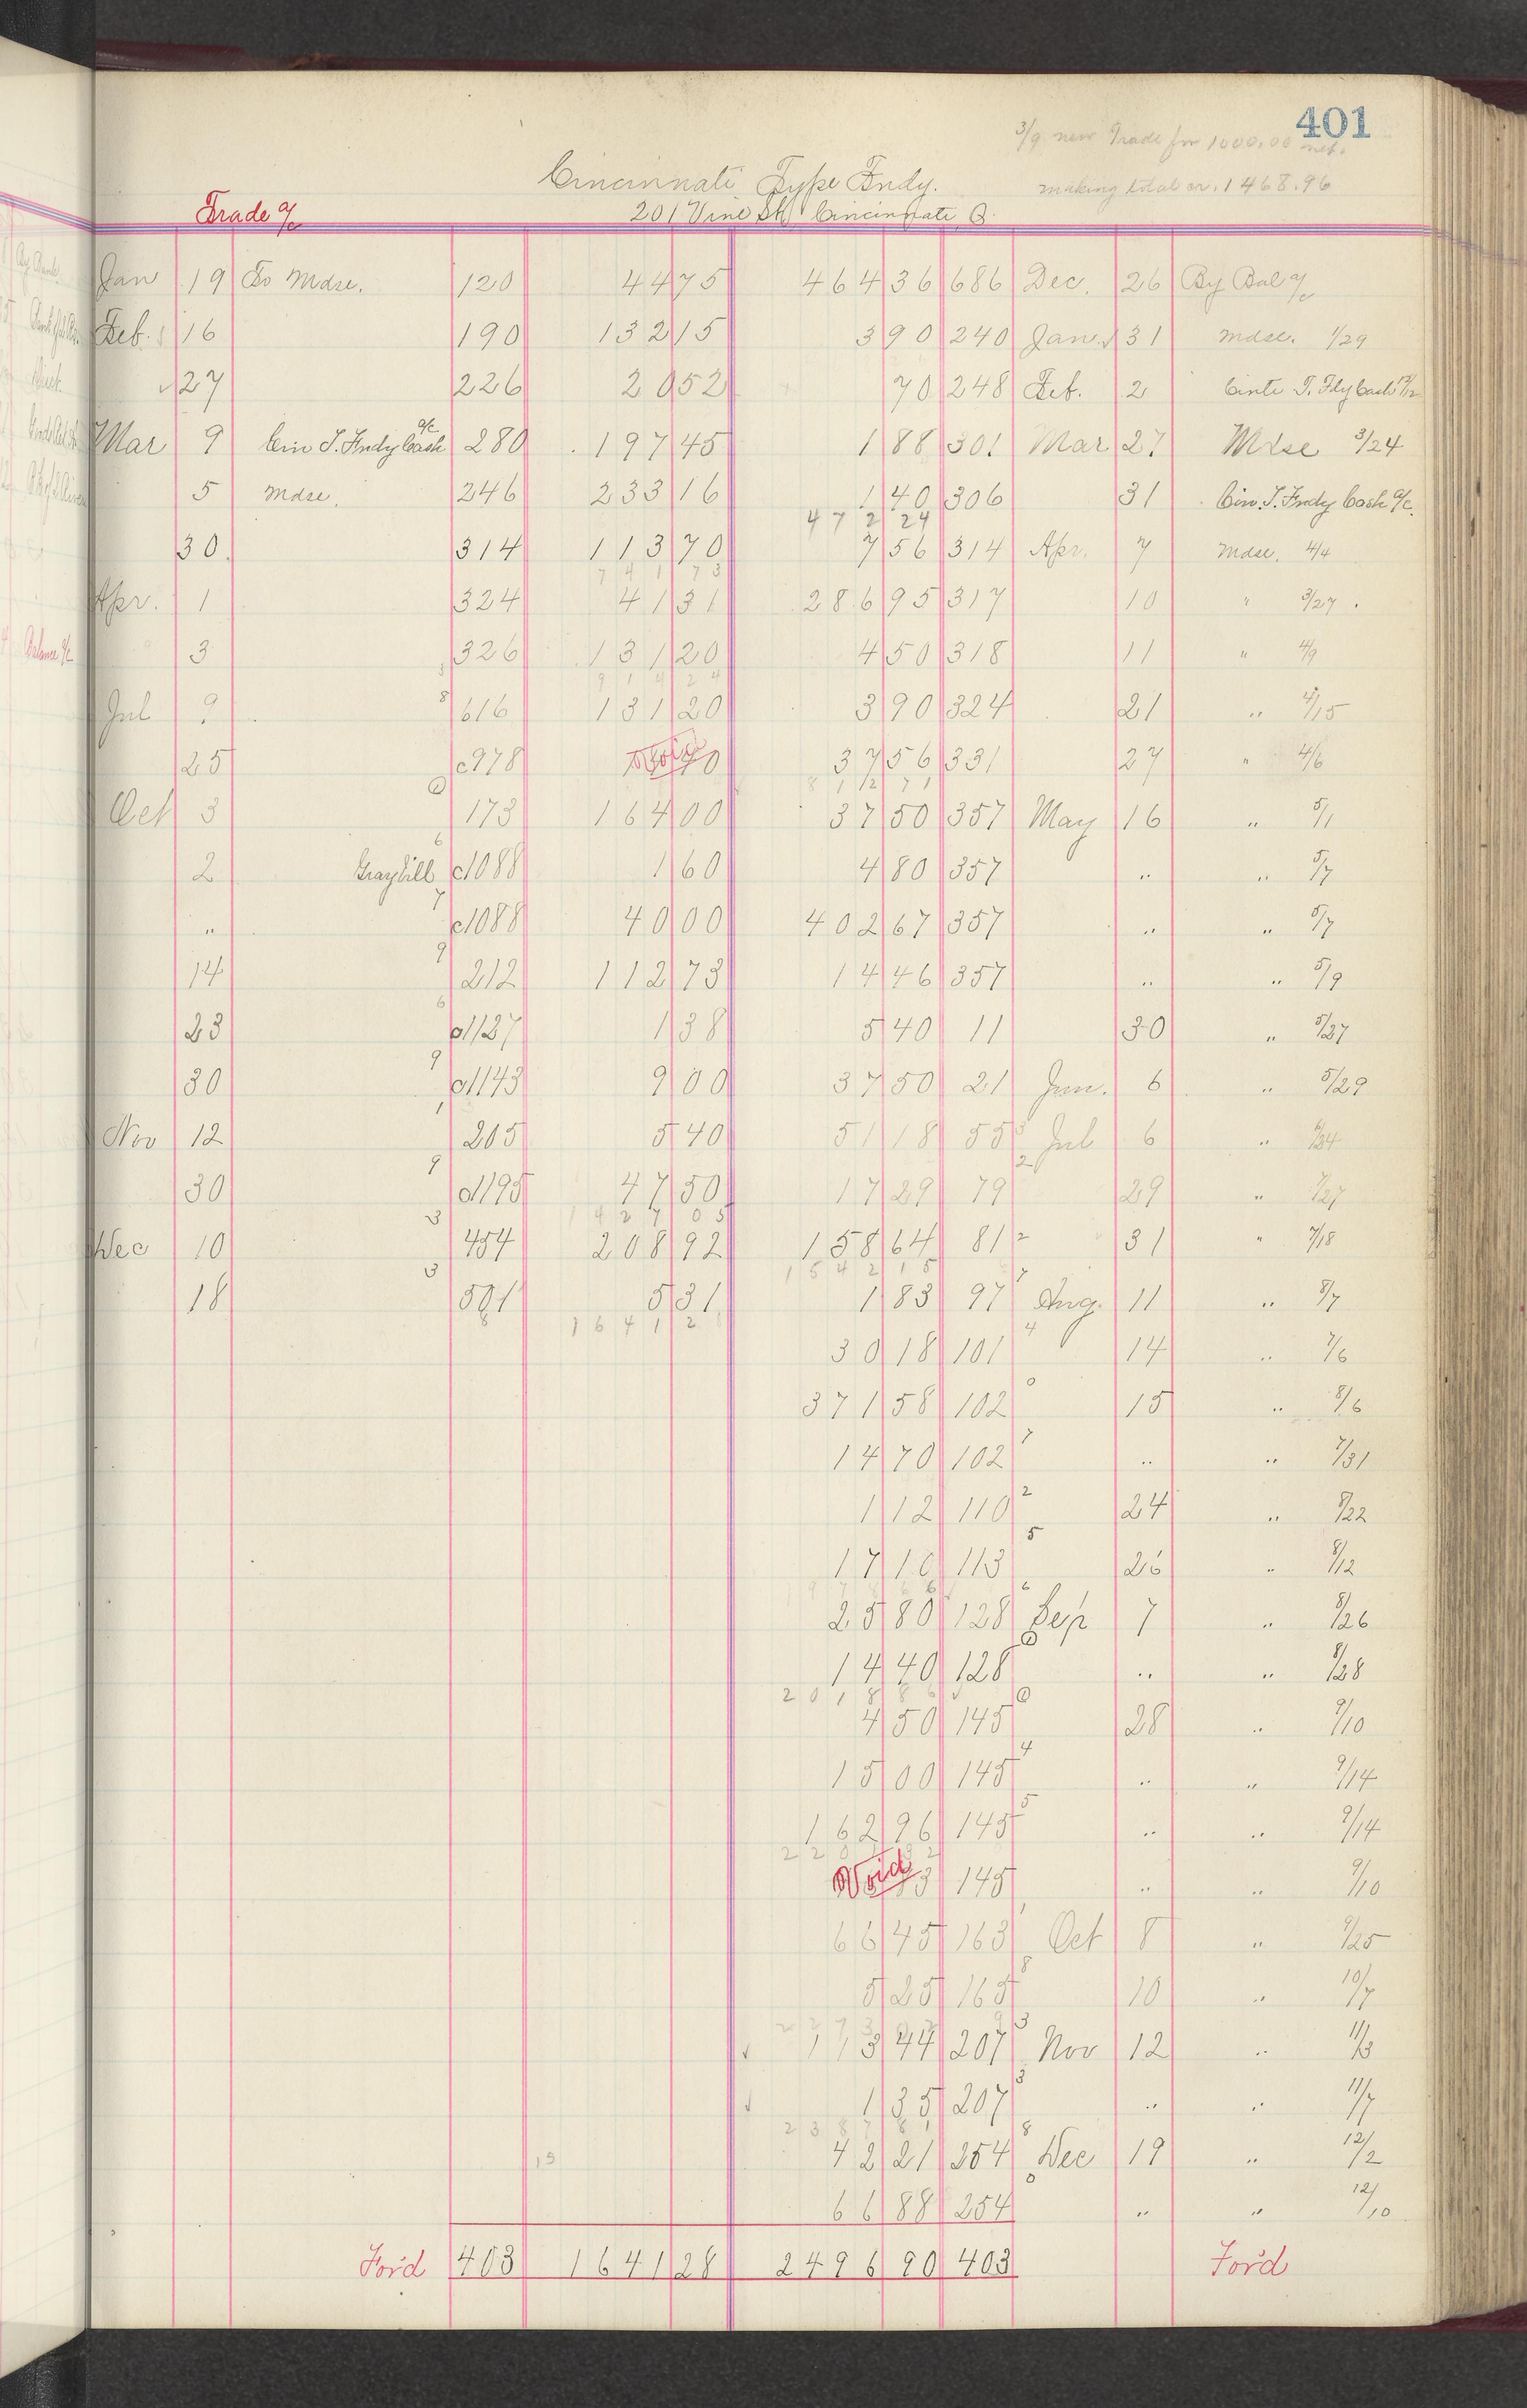 401
3/9 new Trade for 1000.00 net.
Cincinnati Type Fndy. making total cr. 1468.96
Trade a/c 201 Vine St. Cincinnati, O.
Jan 19 To Mdse. 120 44 75 464 36 686 Dec. 26 By Bal a/c
Feb. 16 190 132 15 3 90 240 Jan. 31 mdse. 1/29
27 226 20 52 70 248 Feb. 2 Cinti T. Fdy Cash
Mar 9 Cin T. Fndy Cash a/c 280 197 45 1 88 301 Mar 27 Mdse 3/24
5 mdse. 246 233 16 1 40 306 31 Cin. T. Fndy Cash a/c.
472 24
30 314 113 70 7 56 314 Apr. 7 mdse. 4/4
741 73
Apr. 1 324 41 31 286 95 317 10 " 3/27
3 326 131 20 4 50 318 11 " 4/9
914 24
Jul 9 616 131 20 3 90 324 21 " 4/15
25 c978 Void 37 56 331 27 " 4/6
812 71
Oct 3 173 164 00 37 50 357 May 16 " 5/1
2 Graybill c1088 1 60 4 80 357 " " 5/7
" c1088 40 00 402 67 357 " " 5/7
14 212 112 73 14 46 357 " " 5/9
23 c1127 1 38 5 40 11 30 " 5/27
30 c1143 9 00 37 50 21 Jun. 6 " 5/29
Nov 12 205 5 40 51 18 55 Jul 6 " 6/24
30 c1195 47 50 17 29 79 29 " 7/27
1427 05
Dec 10 454 208 92 158 64 81 31 " 7/18
1542 15
18 501 5 31 1 83 97 Aug. 11 " 8/7
1641 28
30 18 101 14 " 7/6
371 58 102 15 " 8/6
14 70 102 " " 7/31
1 12 110 24 " 8/22
17 10 113 26 " 8/12
25 80 128 Sep 7 " 8/26
14 40 128 " " 8/28
2018 86
4 50 145 28 " 9/10
15 00 145 " " 9/14
162 96 145 " " 9/14
Void 145 " " 9/10
66 45 163 Oct 8 " 9/25
5 25 165 10 " 10/7
113 44 207 Nov 12 " 11/3
1 35 207 " " 11/7
2387 81
42 21 254 Dec 19 " 12/2
66 88 254 " " 12/10
For'd 403 1641 28 2496 90 403 For'd